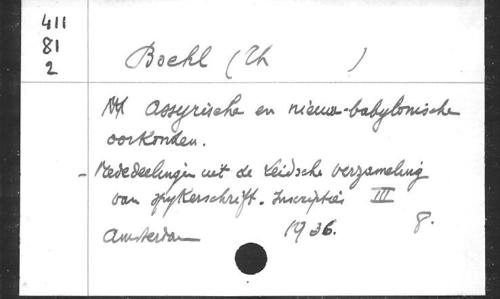 411
81
2
Boehl (Th )
Assyrische en nieuw-babylonische
oorkonden.
- Mededeelingen uit de Leidsche verzameling
van spijkerschrift. Inscripties III
Amsterdam 1936. 8.